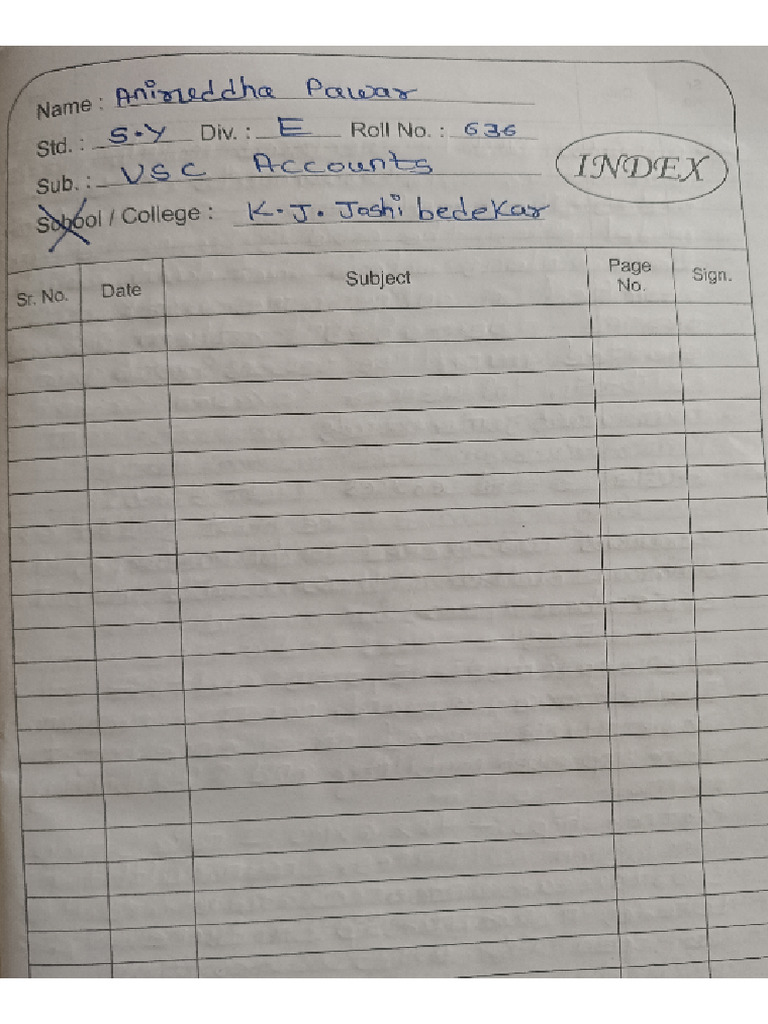 Name : Aniruddha Pawar
Std. : S.Y Div. : E Roll No. : 636
Sub. : VSC Accounts
INDEX
School / College : K.J. Joshi bedekar
Sr. No. Date Subject Page No. Sign.